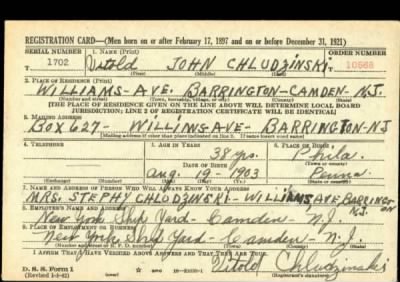 REGISTRATION CARD—(Men born on or after February 17, 1897 and on or before December 31, 1921)
SERIAL NUMBER 1. NAME (Print) ORDER NUMBER
1702 Vitold JOHN CHLUDZINSKI 10568
(First) (Middle) (Last)
2. PLACE OF RESIDENCE (Print)
WILLIAMS-AVE. BARRINGTON-CAMDEN-N.J.
(Number and street) (Town, township, village, or city) (County) (State)
[THE PLACE OF RESIDENCE GIVEN ON THE LINE ABOVE WILL DETERMINE LOCAL BOARD
JURISDICTION; LINE 2 OF REGISTRATION CERTIFICATE WILL BE IDENTICAL]
3. MAILING ADDRESS
BOX 627- WILLIMSAVE- BARRINGTON-NJ
[Mailing address if other than place indicated on line 2. If same insert word same]
4. TELEPHONE 5. AGE IN YEARS 6. PLACE OF BIRTH
38 yrs. Phila.
DATE OF BIRTH
Aug. 19 - 1903 Penna
7. NAME AND ADDRESS OF PERSON WHO WILL ALWAYS KNOW YOUR ADDRESS
MRS. STEPHY CHLODZINSKI-WILLIAMS AVE, BARRINGTON
N.J.
8. EMPLOYER'S NAME AND ADDRESS
New York Ship Yard - Camden - N.J.
9. PLACE OF EMPLOYMENT OR BUSINESS
New York Ship Yard - Camden - N.J.
(Number and street or R. F. D. number) (Town) (County) (State)
I AFFIRM THAT I HAVE VERIFIED ABOVE ANSWERS AND THAT THEY ARE TRUE.
D. S. S. Form 1
(Revised 1-1-42) Vitold Chludzinski
(Registrant's signature)